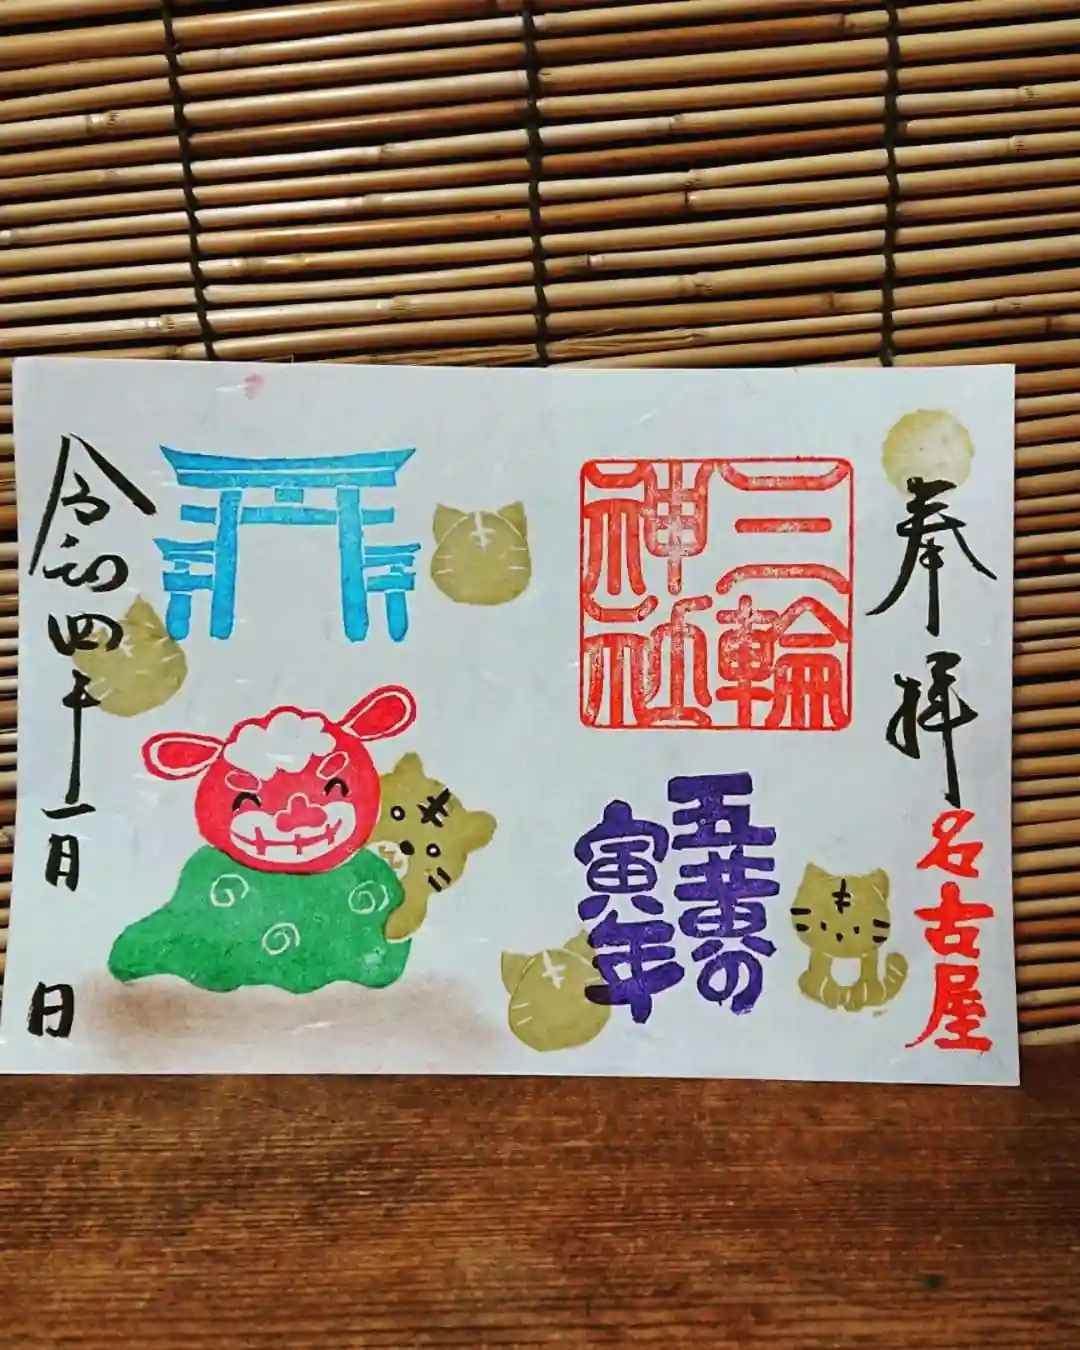 奉拝
名古屋
三輪
神社
五黄の
寅年
令和四年一月 日